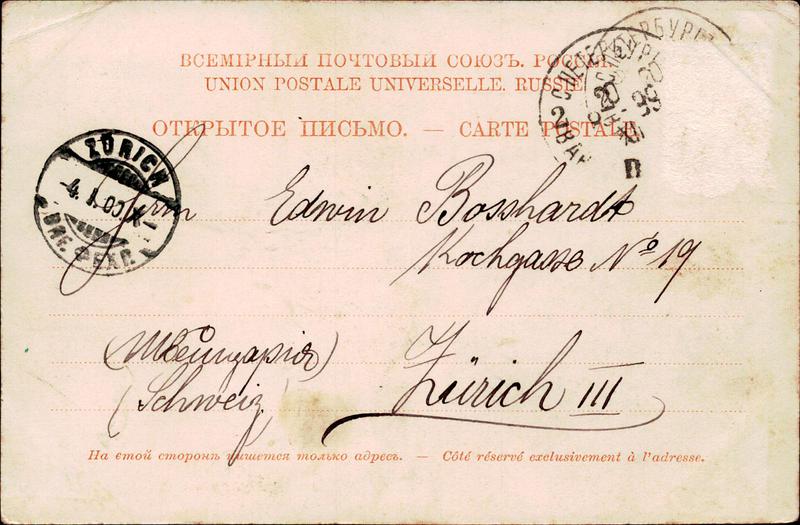 ВСЕМІРНЫЙ ПОЧТОВЫЙ СОЮЗЪ. РОССІЯ.
UNION POSTALE UNIVERSELLE. RUSSIE
ОТКРЫТОЕ ПИСЬМО. — CARTE POSTALE
С.ПЕТЕРБУРГЪ
ZÜRICH
-4. I. 00. X-
BRF.
Herrn Edwin Bosshardt
Kochgasse No 19
(Швейцарія)
(Schweiz)
Zürich III
На этой сторонѣ пишется только адресъ. — Côté réservé exclusivement à l'adresse.